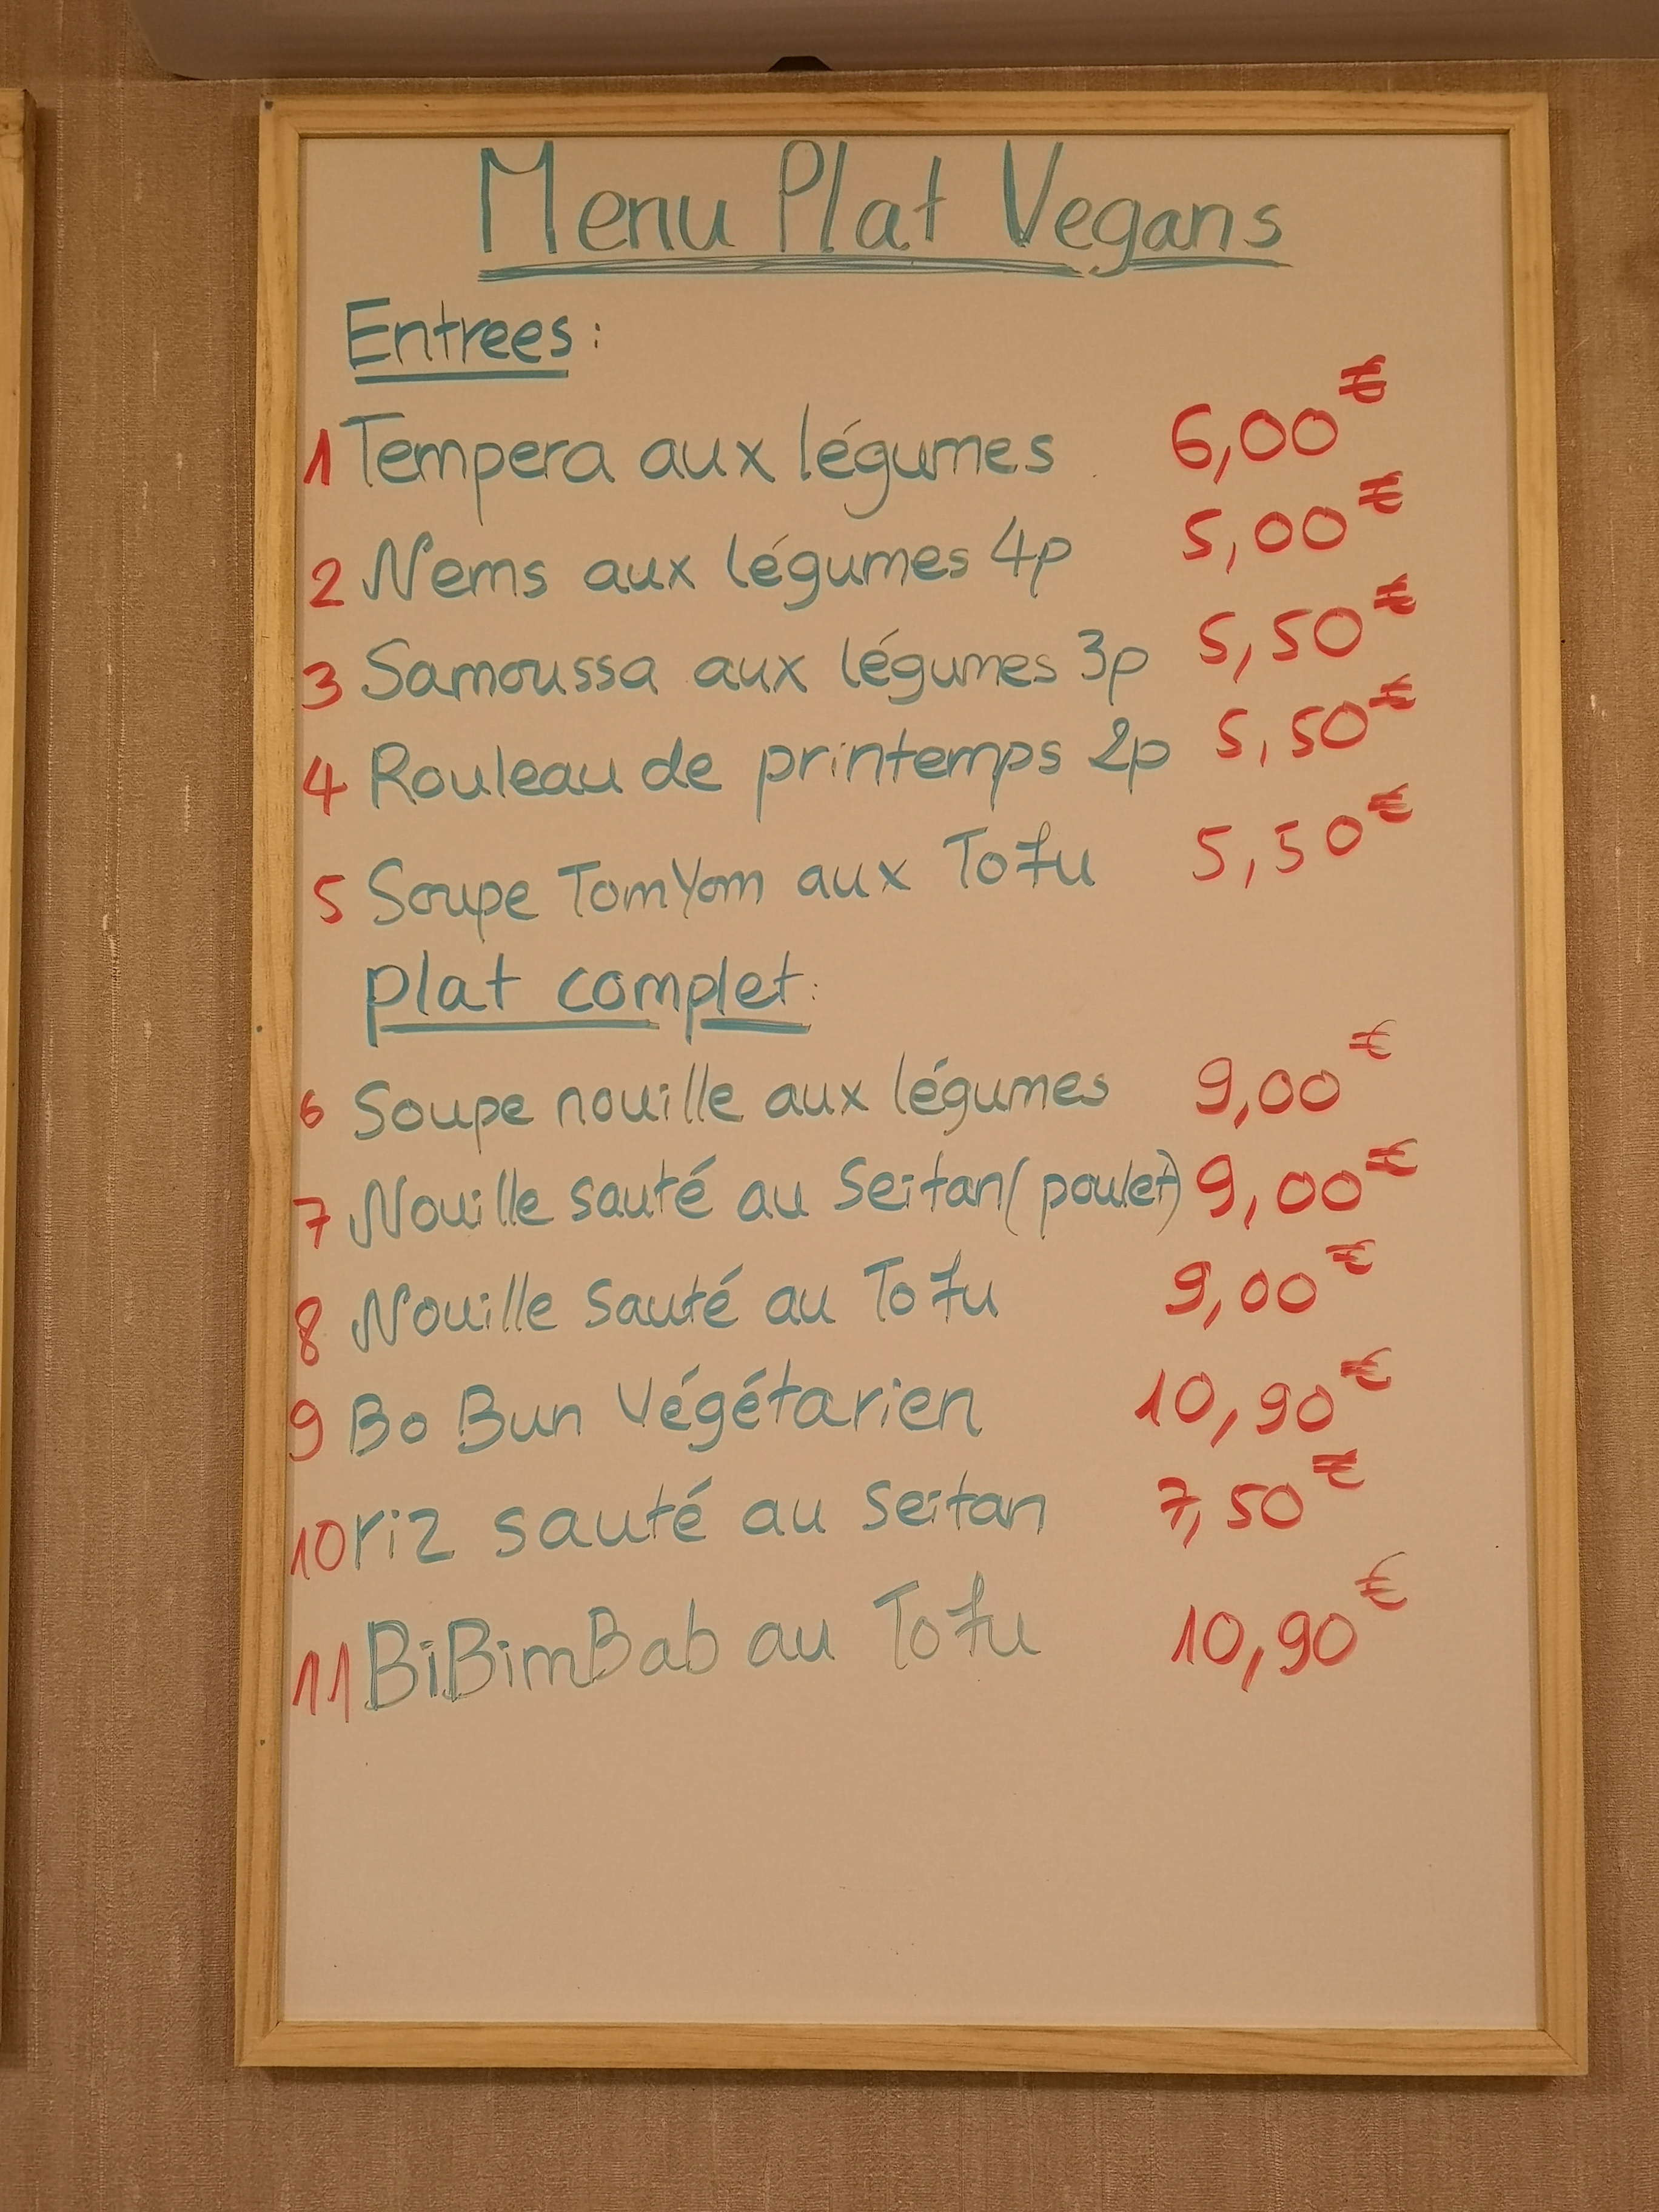 Menu Plat Vegans
Entrees:
1 Tempera aux légumes 6,00€
2 Nems aux légumes 4p 5,00€
3 Samoussa aux légumes 3p 5,50€
4 Rouleau de printemps 2p 5,50€
5 Soupe TomYom aux Tofu 5,50€
plat complet:
6 Soupe nouille aux légumes 9,00€
7 Nouille sauté au Seitan (poulet) 9,00€
8 Nouille sauté au Tofu 9,00€
9 Bo Bun Végétarien 10,90€
10 riz sauté au Seitan 7,50€
11 BiBimBab au Tofu 10,90€